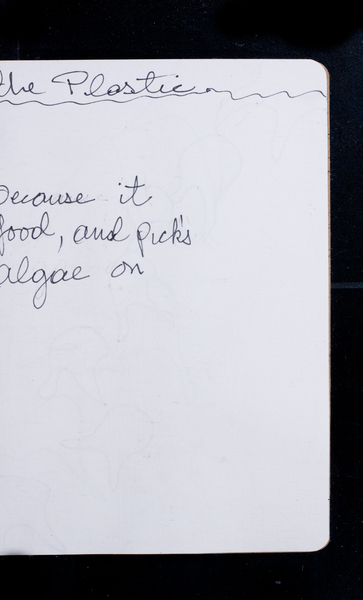 the Plastic
because it
food, and pick's
algae on